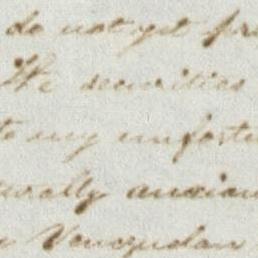 do not get fr
the securities
to my unfortu
urally anxiou
Venezuelan